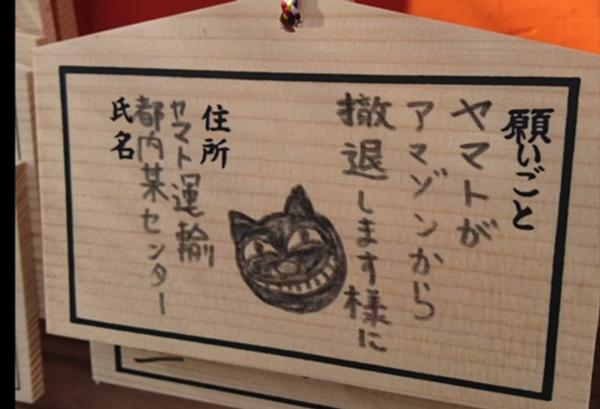 願いごと
ヤマトが
アマゾンから
撤退します様に
住所
ヤマト運輸
都内某センター
氏名